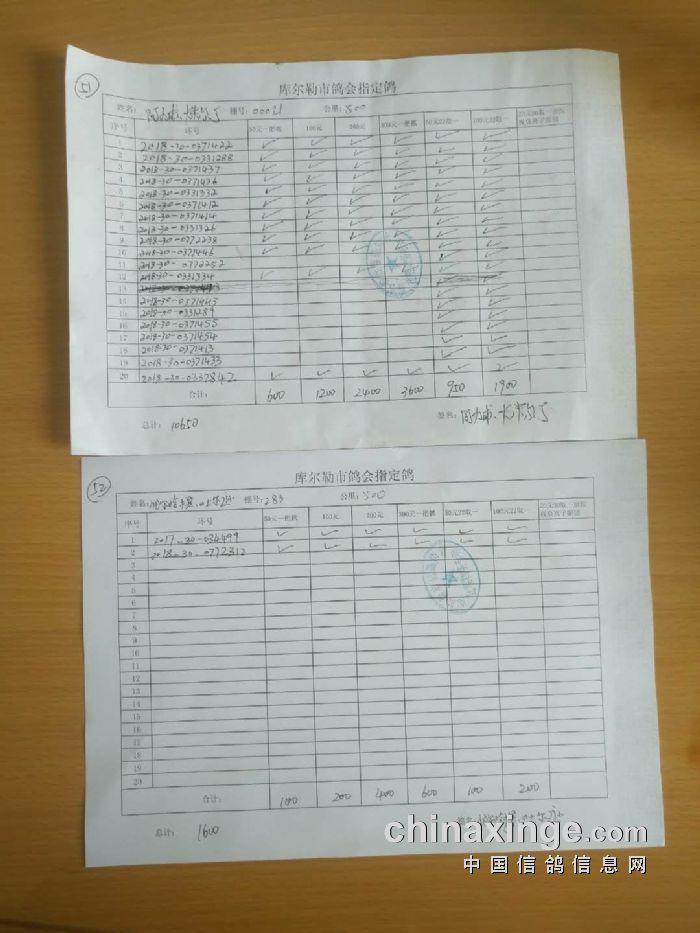 51
库尔勒市鸽会指定鸽
姓名: 棚号: 00021 公里: 500
序号 环号 50元一把抓 100元 200元 300元一把抓 50元22取一 100元22取一
1 2018-30-0371422
2 2018-30-0331288
3 2018-30-0371437
4 2018-30-0371426
5 2018-30-0331332
6 2018-30-0371412
7 2018-30-0371414
8 2018-30-0331326
9 2018-30-0772238
10 2018-30-0371446
11 2018-30-0772252
12 2018-30-0331334
13
14 2018-30-0371443
15 2018-30-0331289
16 2018-30-0371455
17 2018-30-0371454
18 2018-30-0371413
19 2018-30-0371433
20 2018-30-0337842
合计: 600 1200 2400 3600 950 1900
总计: 10650 签名:
52
库尔勒市鸽会指定鸽
姓名: 棚号: 283 公里: 500
序号 环号 50元一把抓 100元 200元 300元一把抓 50元22取一 100元22取一
1 2017-30-034499
2 2018-30-0772312
3
4
5
6
7
8
9
10
11
12
13
14
15
16
17
18
19
20
合计: 100 200 400 600 100 200
总计: 1600 签名:
chinaxinge.com
中国信鸽信息网